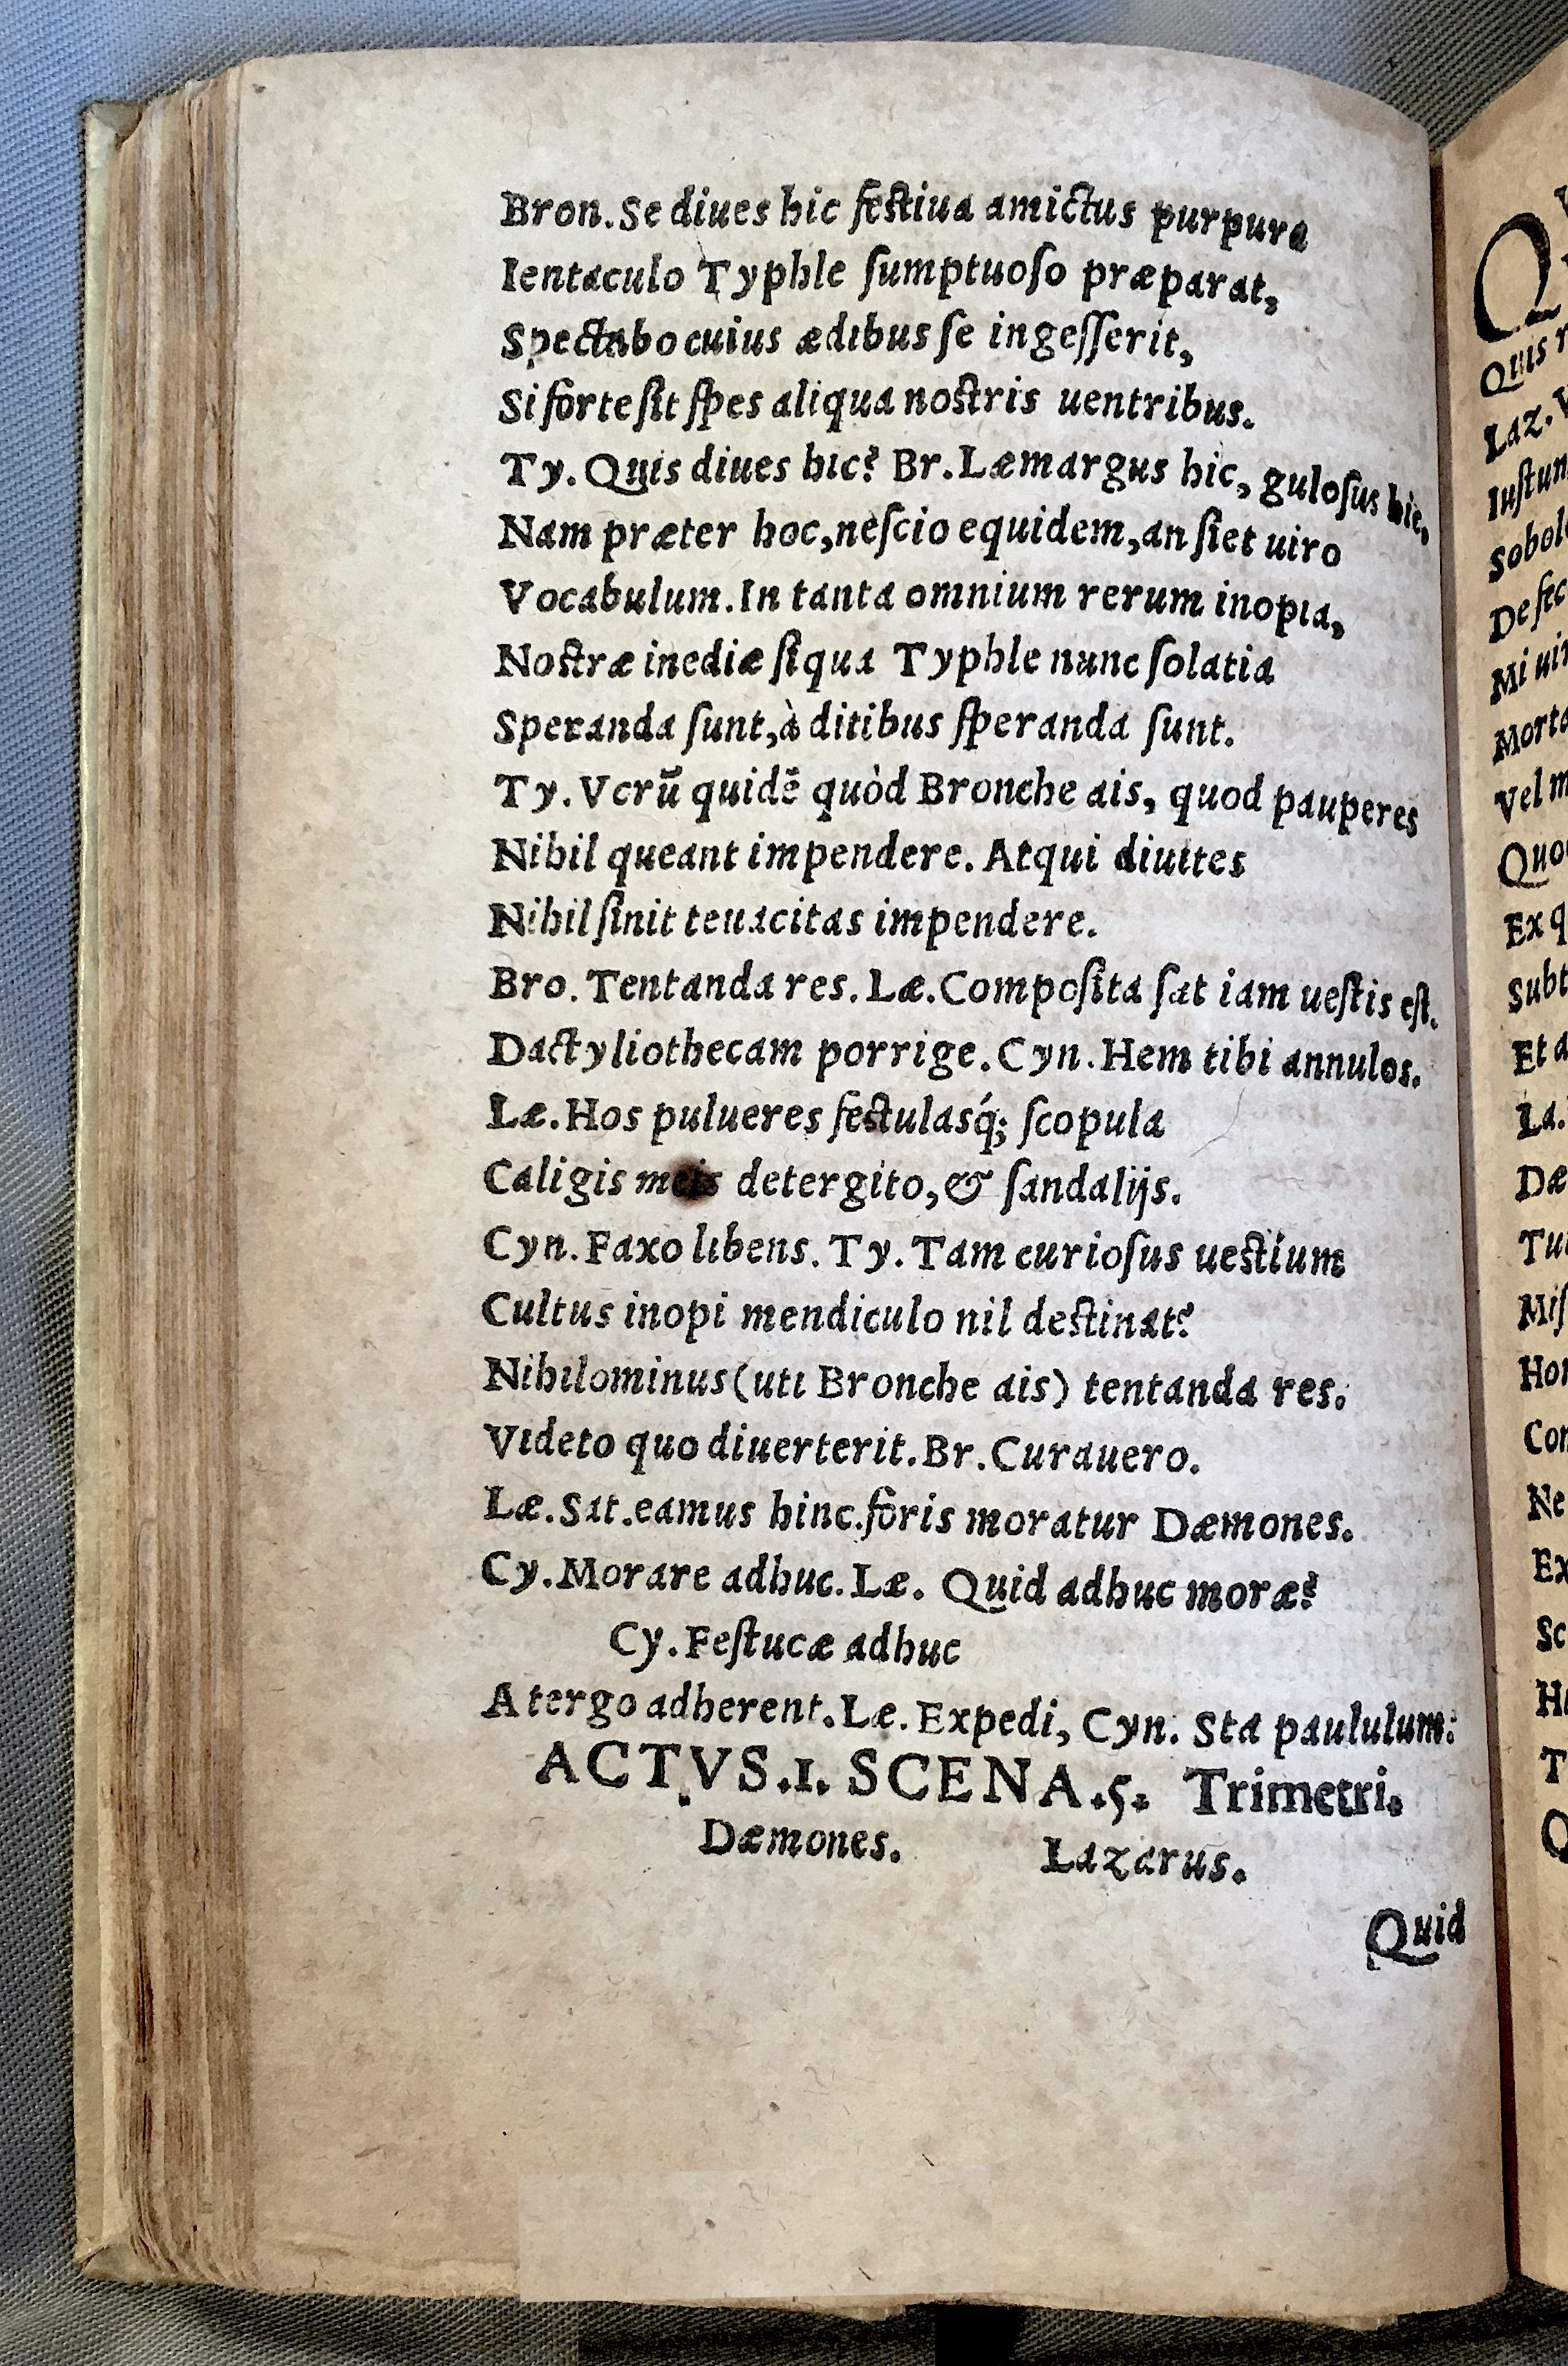 Bron. Se diues hic feſtiua amictus purpura
Ientaculo Typhle ſumptuoſo præparat,
Spectabo cuius ædibus ſe ingeſſerit,
Si forte ſit ſpes aliqua noſtris uentribus.
Ty. Quis diues hic? Br. Læmargus hic, guloſus hic,
Nam præter hoc, neſcio equidem, an ſiet uiro
Vocabulum. In tanta omnium rerum inopia,
Noſtræ inediæ ſiqua Typhle nunc ſolatia
Speranda ſunt, à ditibus ſperanda ſunt.
Ty. Verũ quidẽ quòd Bronche ais, quod pauperes
Nihil queant impendere. Atqui diuites
Nihil ſinit teuacitas impendere.
Bro. Tentanda res. Læ. Compoſita ſat iam ueſtis eſt.
Dactyliothecam porrige. Cyn. Hem tibi annulos.
Læ. Hos pulueres feſtulasq́; ſcopula
Caligis meis detergito, & ſandalijs.
Cyn. Faxo libens. Ty. Tam curioſus ueſtium
Cultus inopi mendiculo nil deſtinat?
Nihilominus (uti Bronche ais) tentanda res.
Videto quo diuerterit. Br. Curauero.
Læ. Sat. eamus hinc. foris moratur Dæmones.
Cy. Morare adhuc. Læ. Quid adhuc moræ?
Cy. Feſtucæ adhuc
A tergo adherent. Læ. Expedi, Cyn. Sta paululum.
ACTVS.1. SCENA.5. Trimetri.
Dæmones. Lazarus.
Quid
Quis
Laz.
Mi
Vel
Ex
Et
La.
Ne